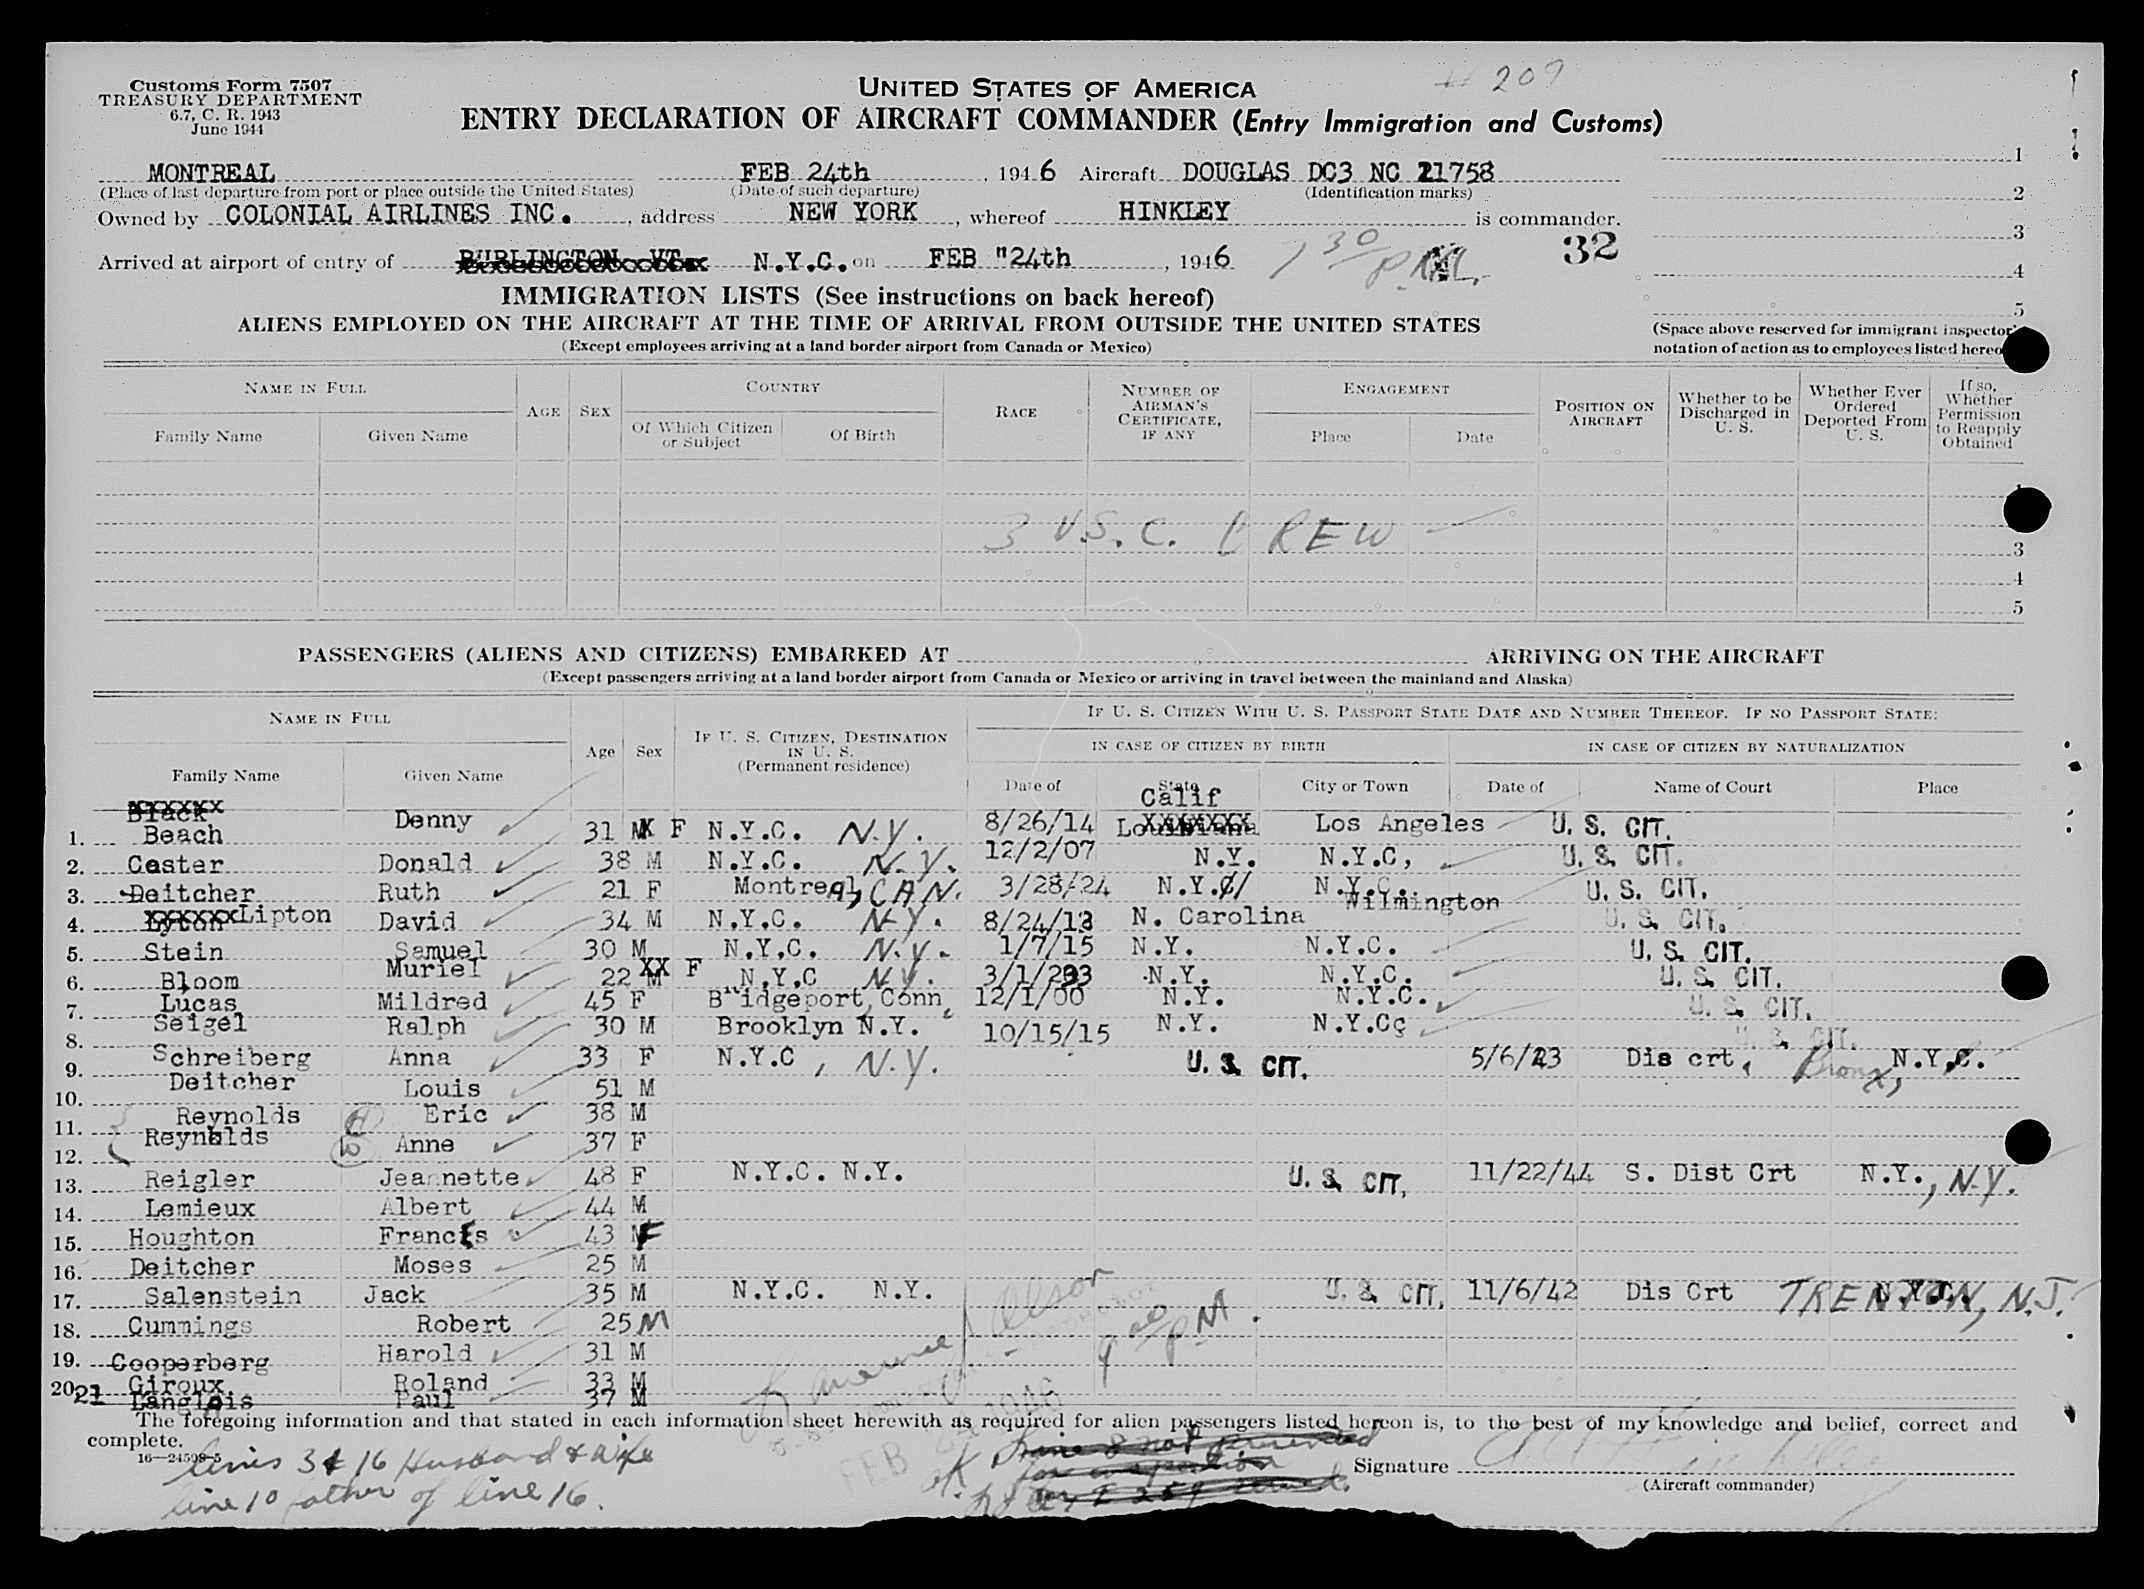 Customs Form 7507
TREASURY DEPARTMENT
6.7, C. R. 1943
June 1944
UNITED STATES OF AMERICA
# 207
ENTRY DECLARATION OF AIRCRAFT COMMANDER (Entry Immigration and Customs)
MONTREAL FEB 24th , 1946 Aircraft DOUGLAS DC3 NC 21758
(Place of last departure from port or place outside the United States) (Date of such departure) (Identification marks)
Owned by COLONIAL AIRLINES INC. , address NEW YORK , whereof HINKLEY is commander.
Arrived at airport of entry of BURLINGTON VT. N.Y.C. on FEB "24th , 1946 7 30/P.M. 32
1
2
3
4
5
(Space above reserved for immigrant inspector'
notation of action as to employees listed hereo
IMMIGRATION LISTS (See instructions on back hereof)
ALIENS EMPLOYED ON THE AIRCRAFT AT THE TIME OF ARRIVAL FROM OUTSIDE THE UNITED STATES
(Except employees arriving at a land border airport from Canada or Mexico)
NAME IN FULL AGE SEX COUNTRY RACE NUMBER OF AIRMAN'S CERTIFICATE, IF ANY ENGAGEMENT POSITION ON AIRCRAFT Whether to be Discharged in U. S. Whether Ever Ordered Deported From U. S. If so, Whether Permission to Reapply Obtained
Family Name Given Name Of Which Citizen or Subject Of Birth Place Date
3 U.S.C. CREW
3
4
5
PASSENGERS (ALIENS AND CITIZENS) EMBARKED AT ARRIVING ON THE AIRCRAFT
(Except passengers arriving at a land border airport from Canada or Mexico or arriving in travel between the mainland and Alaska)
NAME IN FULL Age Sex IF U. S. CITIZEN, DESTINATION IN U. S. (Permanent residence) IF U. S. CITIZEN WITH U. S. PASSPORT STATE DATE AND NUMBER THEREOF. IF NO PASSPORT STATE:
IN CASE OF CITIZEN BY BIRTH IN CASE OF CITIZEN BY NATURALIZATION
Family Name Given Name Date of State City or Town Date of Name of Court Place
Black Calif
1. Beach Denny 31 M F N.Y.C. N.Y. 8/26/14 Louisiana Los Angeles U. S. CIT.
2. Coster Donald 38 M N.Y.C. N.Y. 12/2/07 N.Y. N.Y.C, U. S. CIT.
3. Deitcher Ruth 21 F Montreal, CAN. 3/28/24 N.Y. N.Y.C. U. S. CIT.
4. Lyton Lipton David 34 M N.Y.C. N.Y. 8/24/12 N. Carolina Wilmington U. S. CIT.
5. Stein Samuel 30 M N.Y.C. N.Y. 1/7/15 N.Y. N.Y.C. U. S. CIT.
6. Bloom Muriel 22 M XX F N.Y.C N.Y. 3/1/23 N.Y. N.Y.C. U. S. CIT.
7. Lucas Mildred 45 F Bridgeport, Conn, 12/1/00 N.Y. N.Y.C. U. S. CIT.
8. Seigel Ralph 30 M Brooklyn N.Y. 10/15/15 N.Y. N.Y.Cç U. S. CIT.
9. Schreiberg Anna 33 F N.Y.C , N.Y. U. S. CIT. 5/6/23 Dis crt, Bronx, N.Y.C.
10. Deitcher Louis 51 M
11. Reynolds H Eric 38 M
12. Reynolds W Anne 37 F
13. Reigler Jeannette 48 F N.Y.C. N.Y. U. S. CIT. 11/22/44 S. Dist Crt N.Y., N.Y.
14. Lemieux Albert 44 M
15. Houghton Frances 43 F
16. Deitcher Moses 25 M
17. Salenstein Jack 35 M N.Y.C. N.Y. U. S. CIT. 11/6/42 Dis Crt TRENTON, N.J.
18. Cummings Robert 25 M
19. Cooperberg Harold 31 M
20. Giroux Roland 33 M
21 Langlois Paul 37 M
9 00/PM.
FEB 24 1946
The foregoing information and that stated in each information sheet herewith as required for alien passengers listed hereon is, to the best of my knowledge and belief, correct and
complete.
16—24598-5
lines 3 & 16 Husband & wife
line 10 father of line 16.
OK line 8 not presented
for inspection
Signature
(Aircraft commander)